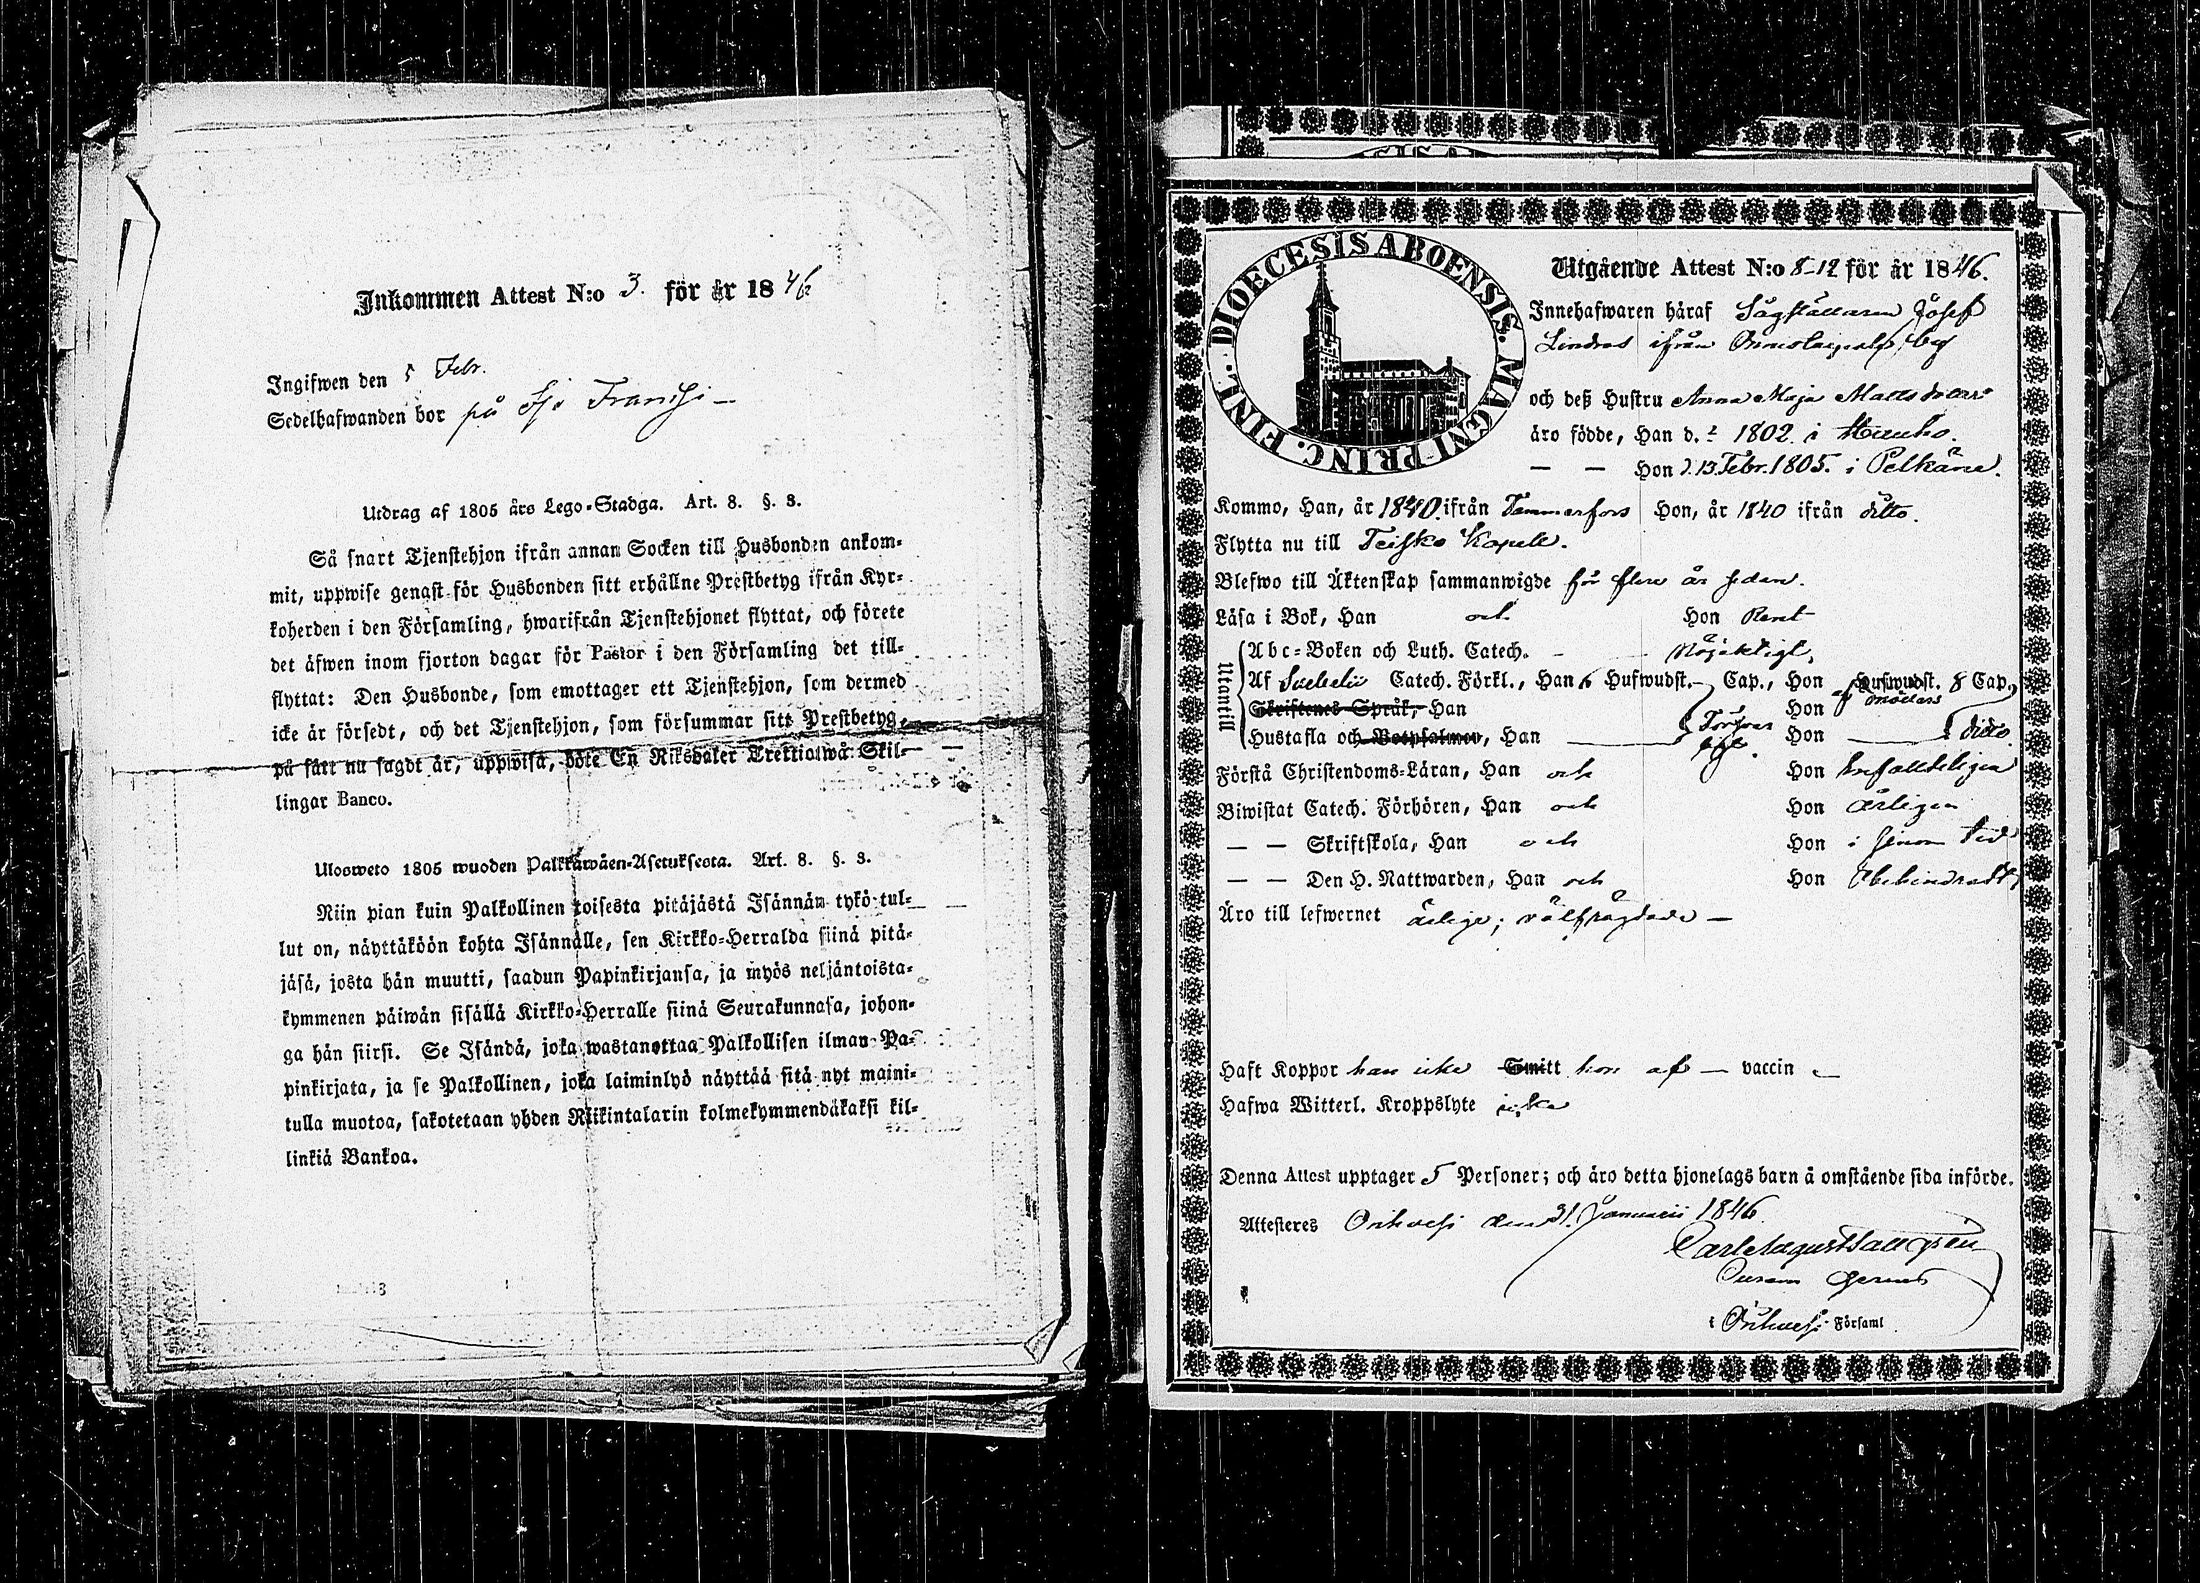 Inkommen Attest N:o 3. för år 1846
Ingifwen den 5 Febr.
Sedelhafwanden bor på
Utdrag af 1805 års Lego-Stadga. Art. 8. §. 3.
Så snart Tjenstehjon ifrån annan Socken till Husbonden ankom-
mit, uppwise genast för Husbonden sitt erhållne Prestbetyg ifrån Kyr-
koherden i den Församling, hwarifrån Tjenstehjonet flyttat, och förete
det äfwen inom fjorton dagar för Pastor i den Församling det till-
flyttat: Den Husbonde, som emottager ett Tjenstehjon, som dermed
icke är försedt, och det Tjenstehjon, som försummar sitt Prestbetyg,
på sätt nu sagdt är, uppwisa, böte En Riksdaler Trettiotwå Skil-
lingar Banco.
Ulosweto 1805 wuoden Palkkawäen-Asetuksesta. Art. 8. §. 3.
Niin pian kuin Palkollinen toisesta pitäjästä Isännän tykö tul-
lut on, näyttäköön kohta Isännälle, sen Kirkko-Herralda siinä pitä-
jäsä, josta hän muutti, saadun Papinkirjansa, ja myös neljäntoista-
kymmenen päiwän sisällä Kirkko-Herralle siinä Seurakunnasa, johon-
ga hän siirsi. Se Isändä, joka wastanottaa Palkollisen ilman Pa-
pinkirjata, ja se Palkollinen, joka laiminlyö näyttää sitä nyt maini-
tulla muotoa, sakotetaan yhden Riikintalarin kolmekymmendäkaksi kil-
linkiä Bankoa.
DIOECESIS ABOENSIS. MAGNI PRINC. FINL.
Utgående Attest N:o 8-12 för år 1846.
Innehafwaren häraf Sågställaren Josef
Lindros ifrån by
och deß Hustru Anna Maja Mattsdotter
äro födde, Han d. 1802. i
— — Hon d. 13 Febr. 1805. i Pelkäne.
Kommo, Han, år 1840. ifrån Tammerfors Hon, år 1840 ifrån ditto.
Flytta nu till Teisko Kapell.
Blefwo till Äktenskap sammanwigde för flere år sedan.
Läsa i Bok, Han och Hon Rent
Utantill
Abc-Boken och Luth. Catech. — Nöjaktigt,
Af Svebelii Catech. Förkl., Han 6 Hufwudst. — Cap., Hon af Hufwudst. 8 Cap.,
Skriftenes Språk, Han Hon Möllers
Hustafla och Botpsalmen, Han — Hon — ditto
Förstå Christendoms-Läran, Han och Hon enfalldeligen
Biwistat Catech. Förhören, Han och Hon Årligen
— — Skriftskola, Han och Hon i sinom tid
— — Den H. Nattwarden, Han och Hon Obehindradt,
Äro till lefwernet ärlige; välfrägdade —
Haft Koppor han icke Smitt hon af — vaccin —
Hafwa Witterl. Kroppslyte icke
Denna Attest upptager 5 Personer; och äro detta hjonelags barn å omstående sida införde.
Attesteres Orihvesi den 31. Januarii 1846.
Carl August
i Orihvesi Församl